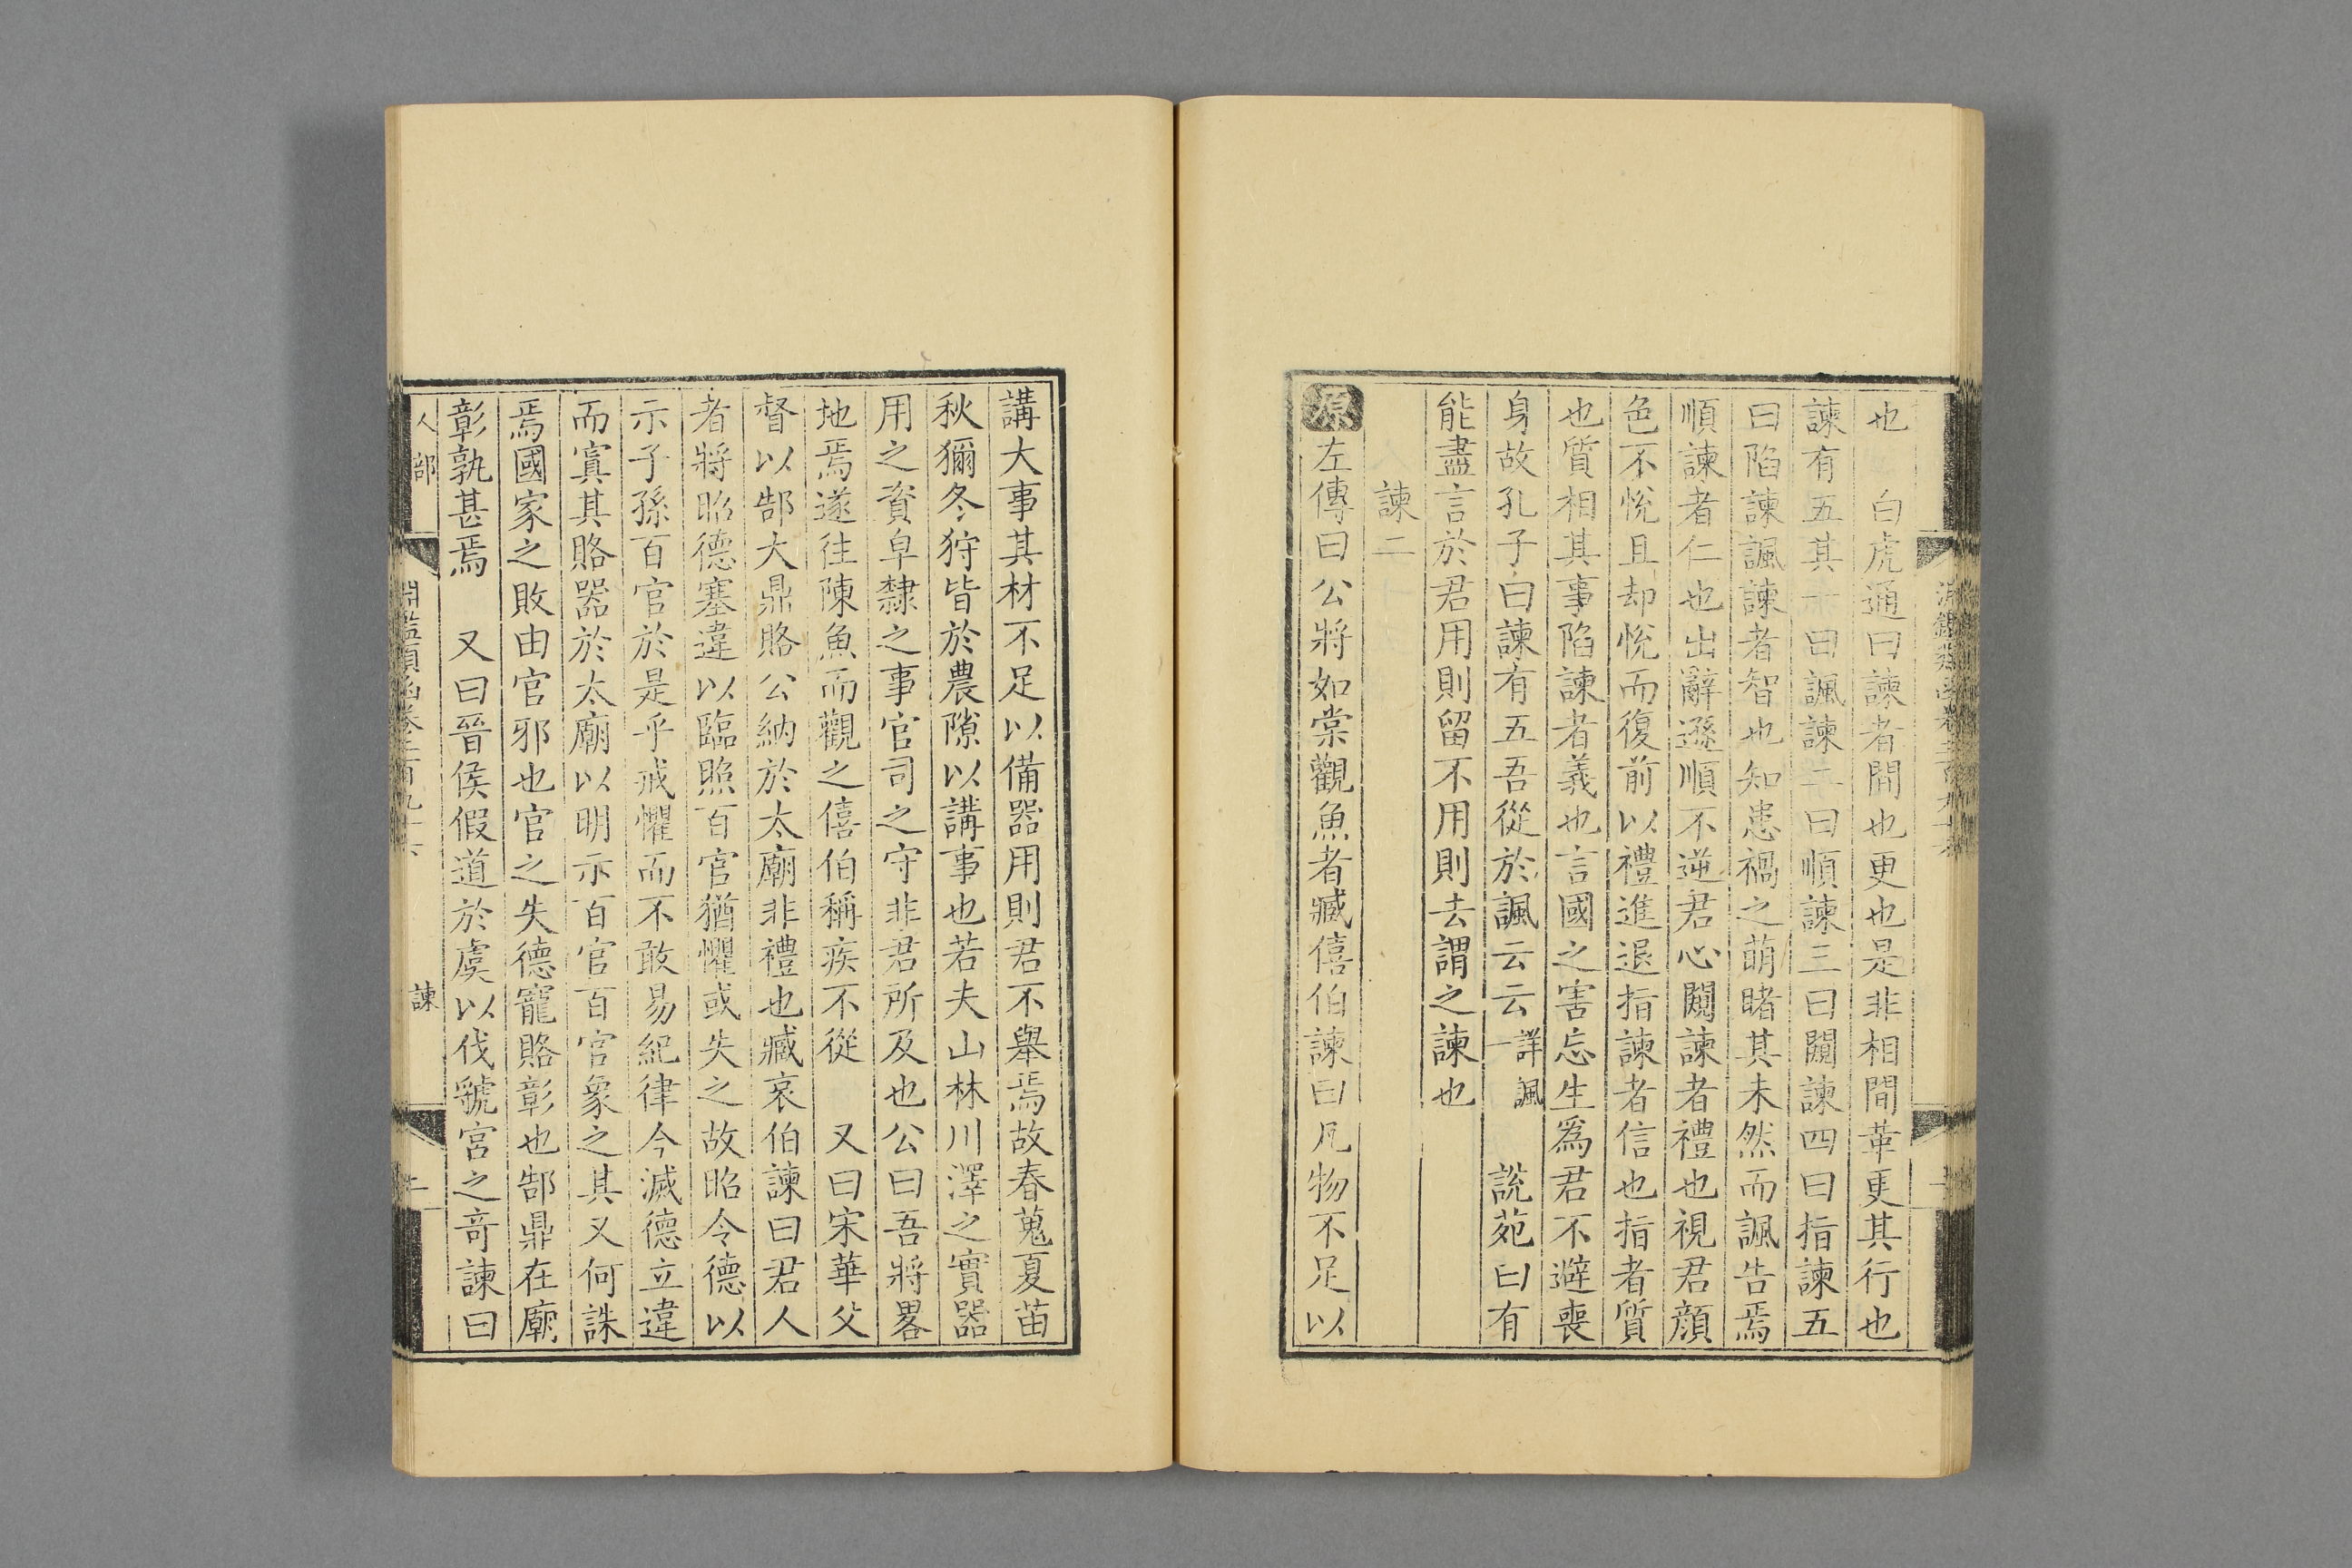 也　白虎通曰諫者間也更也是非相間革更其行也
諫有五其一曰諷諫二曰順諫三曰闚諫四曰指諫五
曰陷諫諷諫者智也知患禍之萌睹其未然而諷告焉
順諫者仁也出辭遜順不逆君心闚諫者禮也視君顏
色不悅且却悅而復前以禮進退指諫者信也指者質
也質相其事陷諫者義也言國之害忘生爲君不避喪
身故孔子曰諫有五吾從於諷云云詳諷一　說苑曰有
能盡言於君用則留不用則去謂之諫也
諫二
原左傳曰公將如棠觀魚者臧僖伯諫曰凡物不足以
講大事其材不足以備器用則君不舉焉故春蒐夏苗
秋獮冬狩皆於農隙以講事也若夫山林川澤之實器
用之資皁隸之事官司之守非君所及也公曰吾將畧
地焉遂往陳魚而觀之僖伯稱疾不從　又曰宋華父
督以郜大鼎賂公納於太廟非禮也臧哀伯諫曰君人
者將昭德塞違以臨照百官猶懼或失之故昭令德以
示子孫百官於是乎戒懼而不敢易紀律今滅德立違
而寘其賂器於太廟以明示百官百官象之其又何誅
焉國家之敗由官邪也官之失德寵賂彰也郜鼎在廟
彰孰甚焉　又曰晉侯假道於虞以伐虢宮之奇諫曰
人部　淵鑑類函卷二百九十六　諫　二